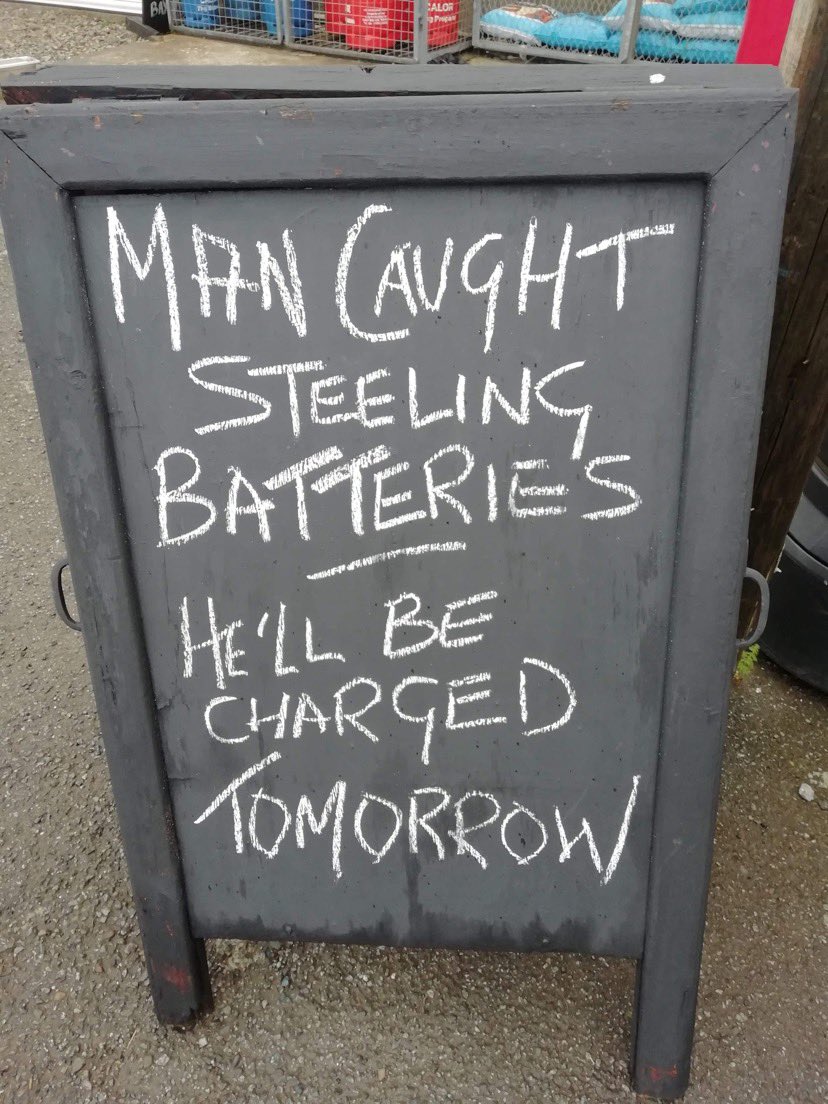 BA
CALOR
Propane
MAN CAUGHT
STEELING
BATTERIES
HE'LL BE
CHARGED
TOMORROW